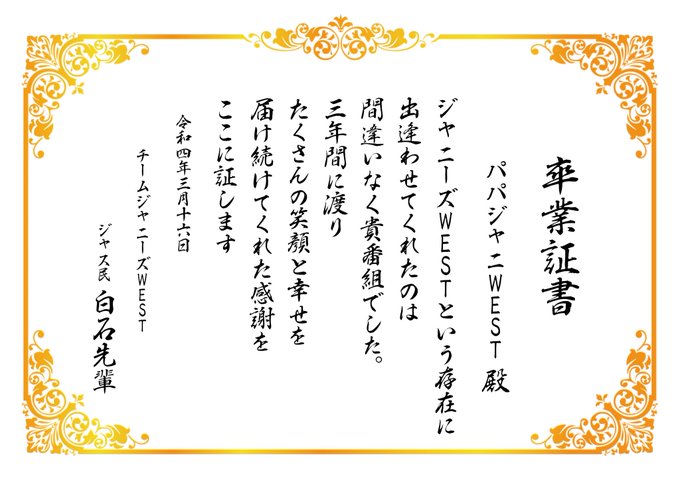 卒業証書
パパジャニWEST 殿
ジャニーズWESTという存在に
出逢わせてくれたのは
間違いなく貴番組でした。
三年間に渡り
たくさんの笑顔と幸せを
届け続けてくれた感謝を
ここに証します
令和四年三月十六日
チームジャニーズWEST
ジャス民 白石先輩